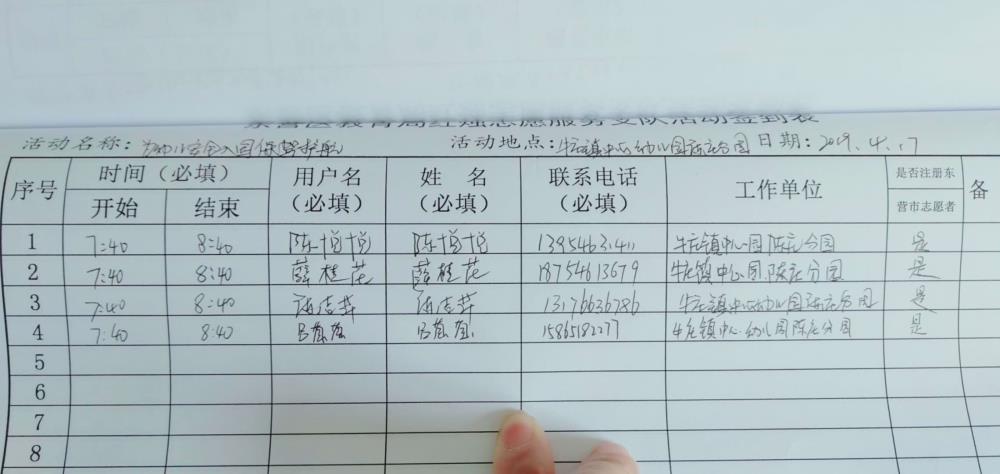 活动名称：幼儿安全入园保驾护航 活动地点：牛庄镇中心幼儿园陈庄分园 日期：2019.4.17
序号 时间（必填） 用户名（必填） 姓 名（必填） 联系电话（必填） 工作单位 是否注册东营市志愿者 备
开始 结束
1 7:40 8:40 陈悦悦 陈悦悦 牛庄镇中心园陈庄分园 是
2 7:40 8:40 薛桂花 薛桂花 18754613679 牛庄镇中心园陈庄分园 是
3 7:40 8:40 13176636786 牛庄镇中心幼儿园陈庄分园 是
4 7:40 8:40 15865182277 牛庄镇中心幼儿园陈庄分园 是
5
6
7
8